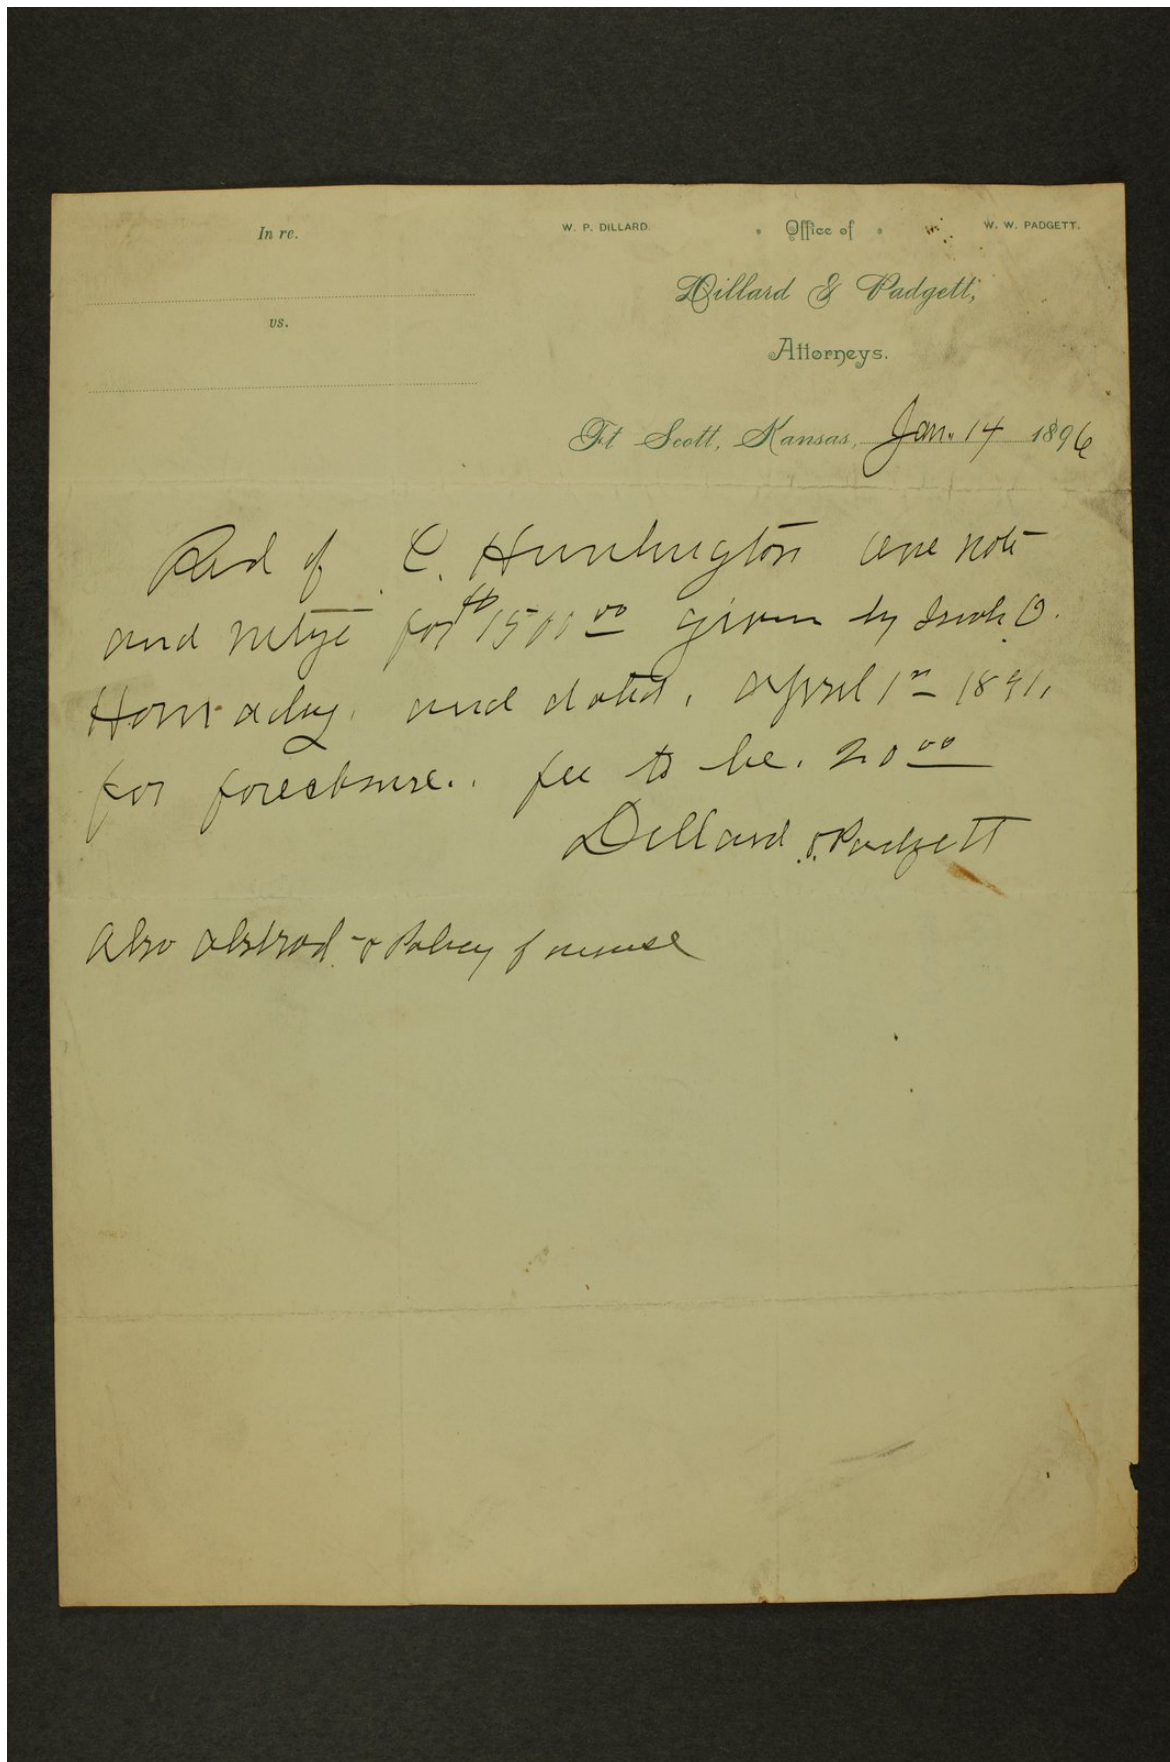 In re.
vs.
W. P. DILLARD.
Office of
W. W. PADGETT.
Dillard & Padgett,
Attorneys.
Ft Scott, Kansas, Jan. 14 1896
Recd of C. Hunthington one note
and mtge for $1500 00 given by O.
Hornaday. and dated, April 1st 1891,
for foreclosure.. fee to be. 20 00
Dillard & Padgett
Also abstract & Policy of